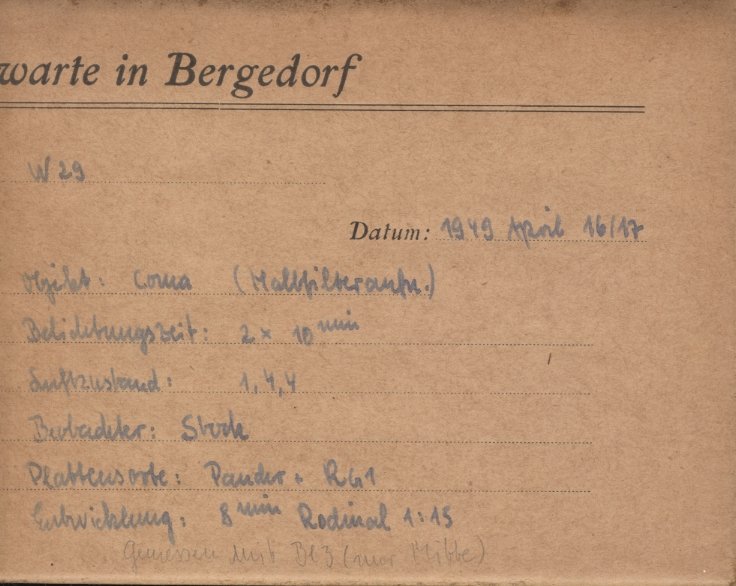 warte in Bergedorf
W 29
Datum: 1949 April 16/17
Objekt: Coma (Halbfilteraufn.)
Belichtungszeit: 2 × 10 min
Luftzustand: 1,4,4
Beobachter: Stock
Plattensorte: Panchr + RG1
Entwicklung: 8 min Rodinal 1:15
Gemessen mit (nur Mitte)